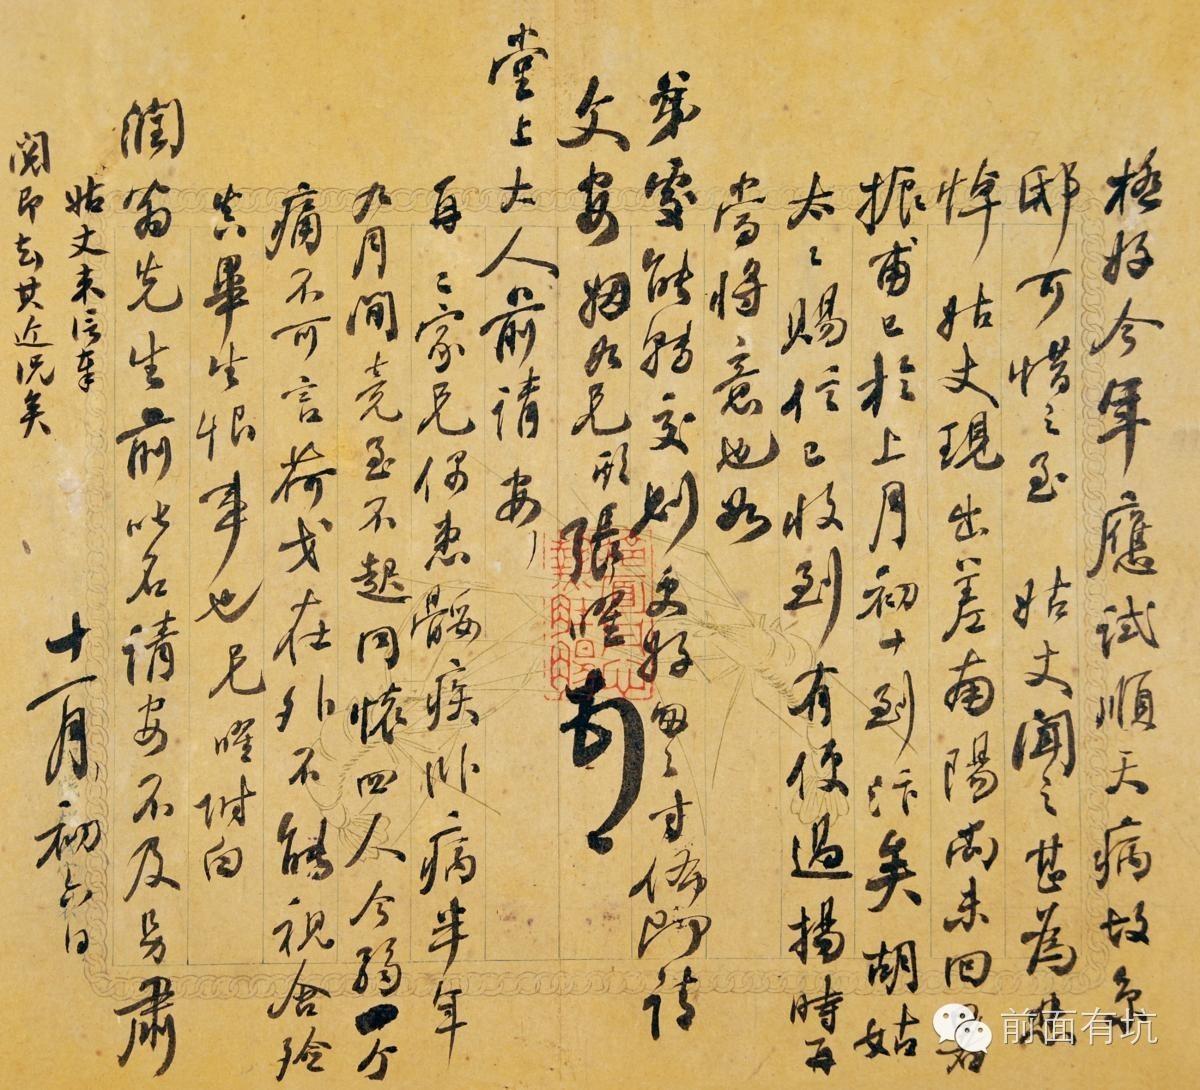 極好今年應試順天病故京
邸可惜之至　姑丈聞之甚為悲
悼　姑丈現出差南陽尚未回署
振甫已於上月初十到汴矣胡姑
太太賜信已收到有便過揚時再
當將意也如
弟處能轉交則更好匆匆寸佈即請
文安姻如兄形張曜頓
堂上大人前請安
再　二家兄偶患斷疾卧病半年
九月間竟至不起同懷四人今弱一个
痛不可言荷戈在外不能視含殮
真畢生恨事也兄曜附白
潤翁先生前叱名請安不及另肅
十一月初六日
姑丈來信奉
閱即去其近況矣
前面有坑